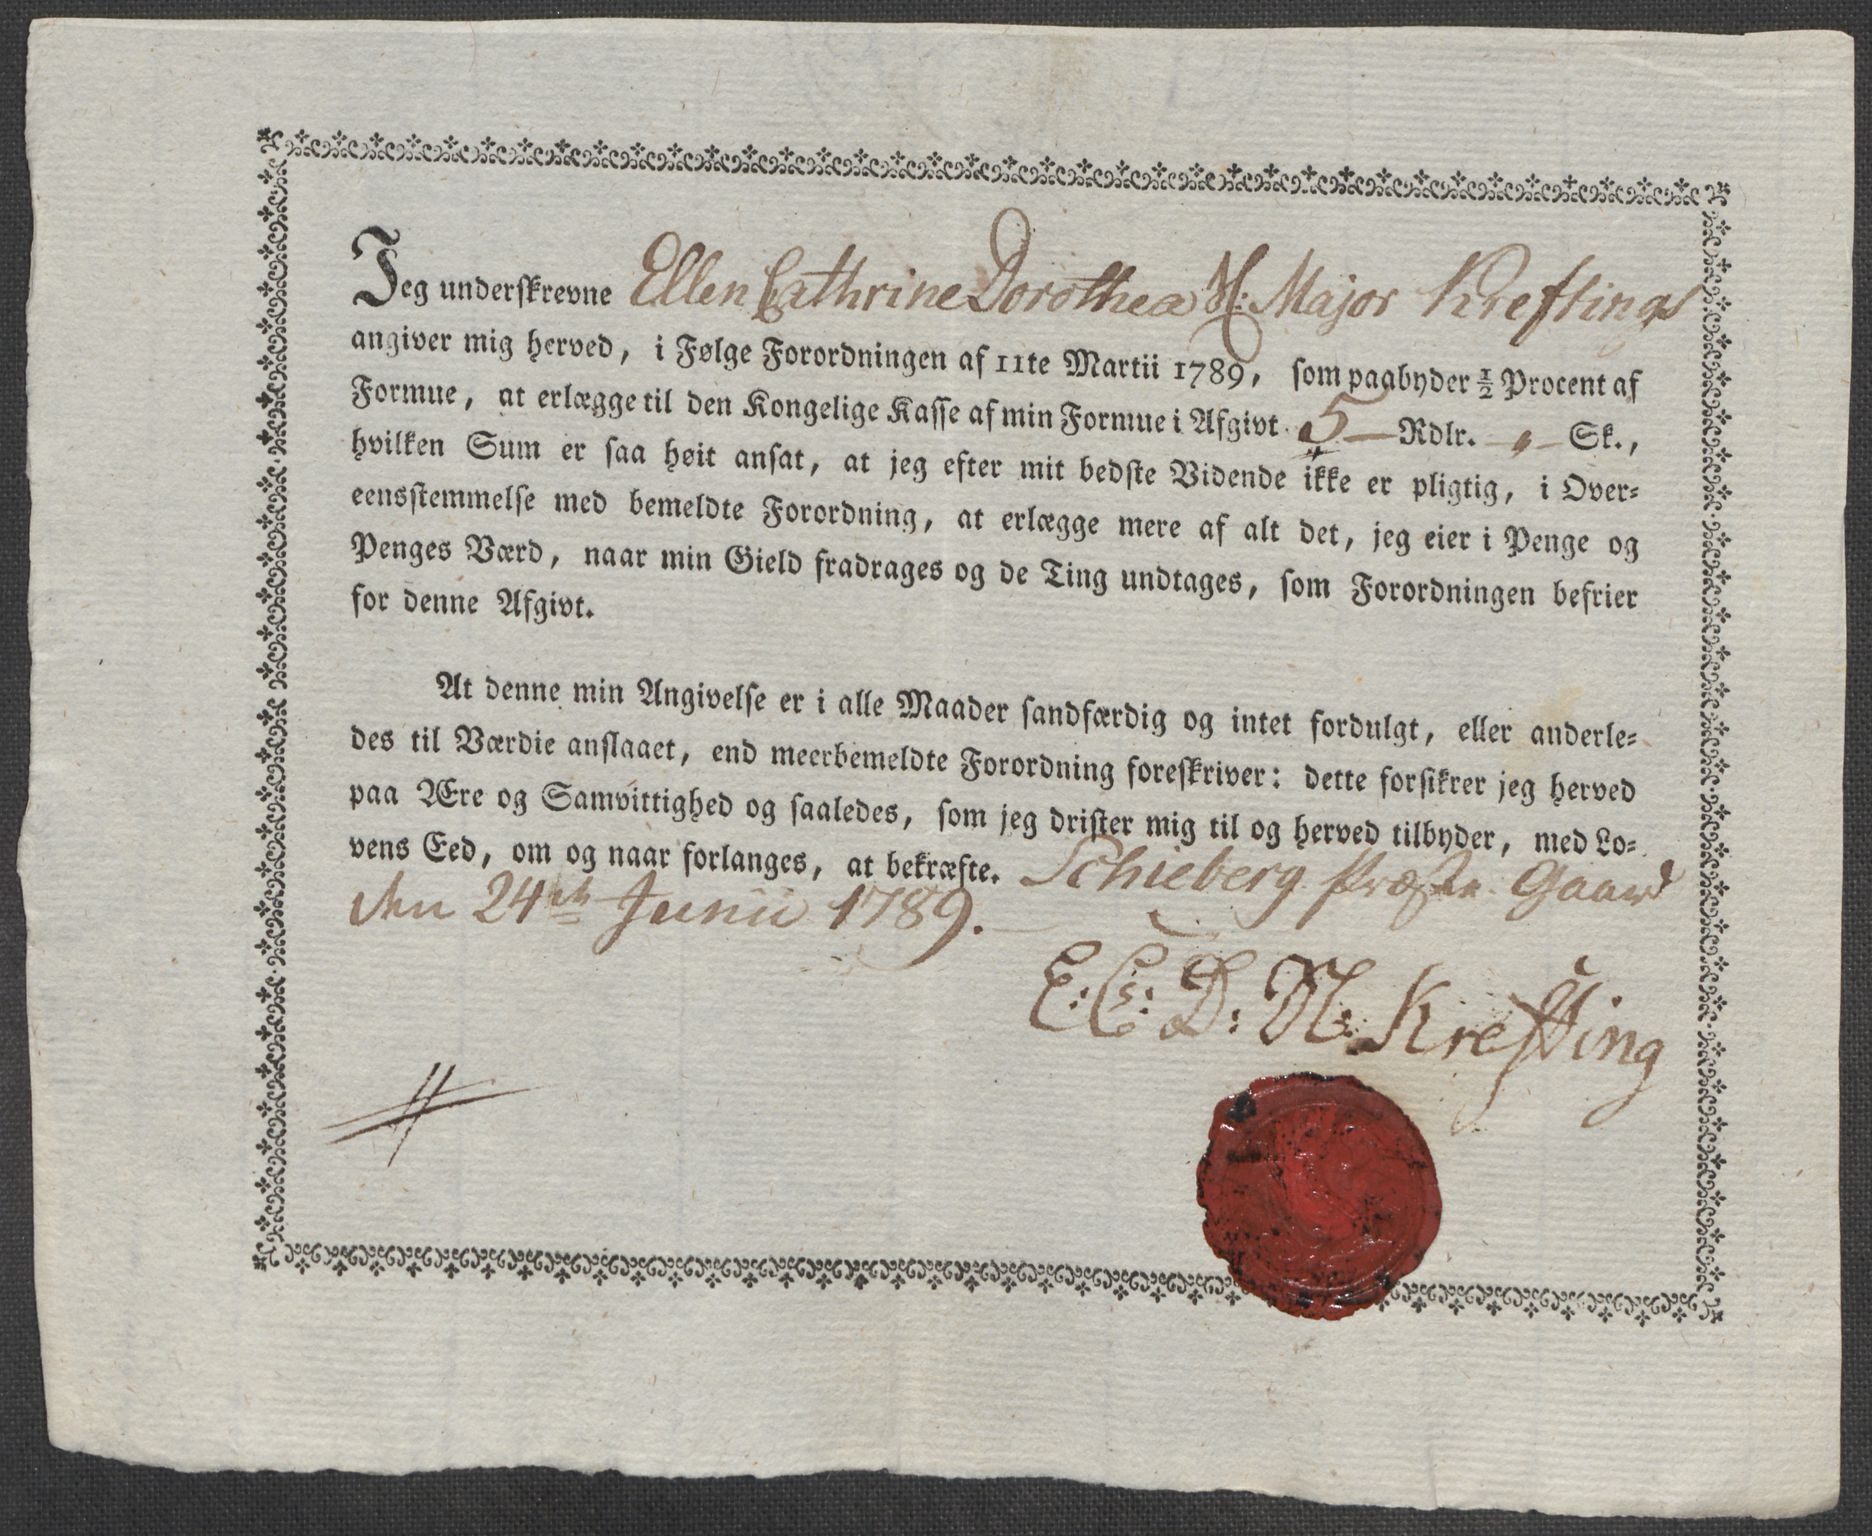 Jeg underskrevne Ellen Cathrine Dorothea N: Major Kreftings
angiver mig herved, i Følge Forordningen af 11te Martii 1789, som paabyder ½ Procent af
Formue, at erlægge til den Kongelige Kasse af min Formue i Afgivt 5 — Rdlr. — " — Sk.,
hvilken Sum er saa høit ansat, at jeg efter mit bedste Vidende ikke er pligtig, i Over-
eensstemmelse med bemeldte Forordning, at erlægge mere af alt det, jeg eier i Penge og
Penges Værd, naar min Gield fradrages og de Ting undtages, som Forordningen befrier
for denne Afgivt.
At denne min Angivelse er i alle Maader sandfærdig og intet fordulgt, eller anderle-
des til Værdie anslaaet, end meerbemeldte Forordning foreskriver: dette forsikrer jeg herved
paa Ære og Samvittighed og saaledes, som jeg drister mig til og herved tilbyder, med Lo-
vens Eed, om og naar forlanges, at bekræfte. Schieberg Præste Gaard
den 24de Junii 1789.
E: C: D: N: Krefting